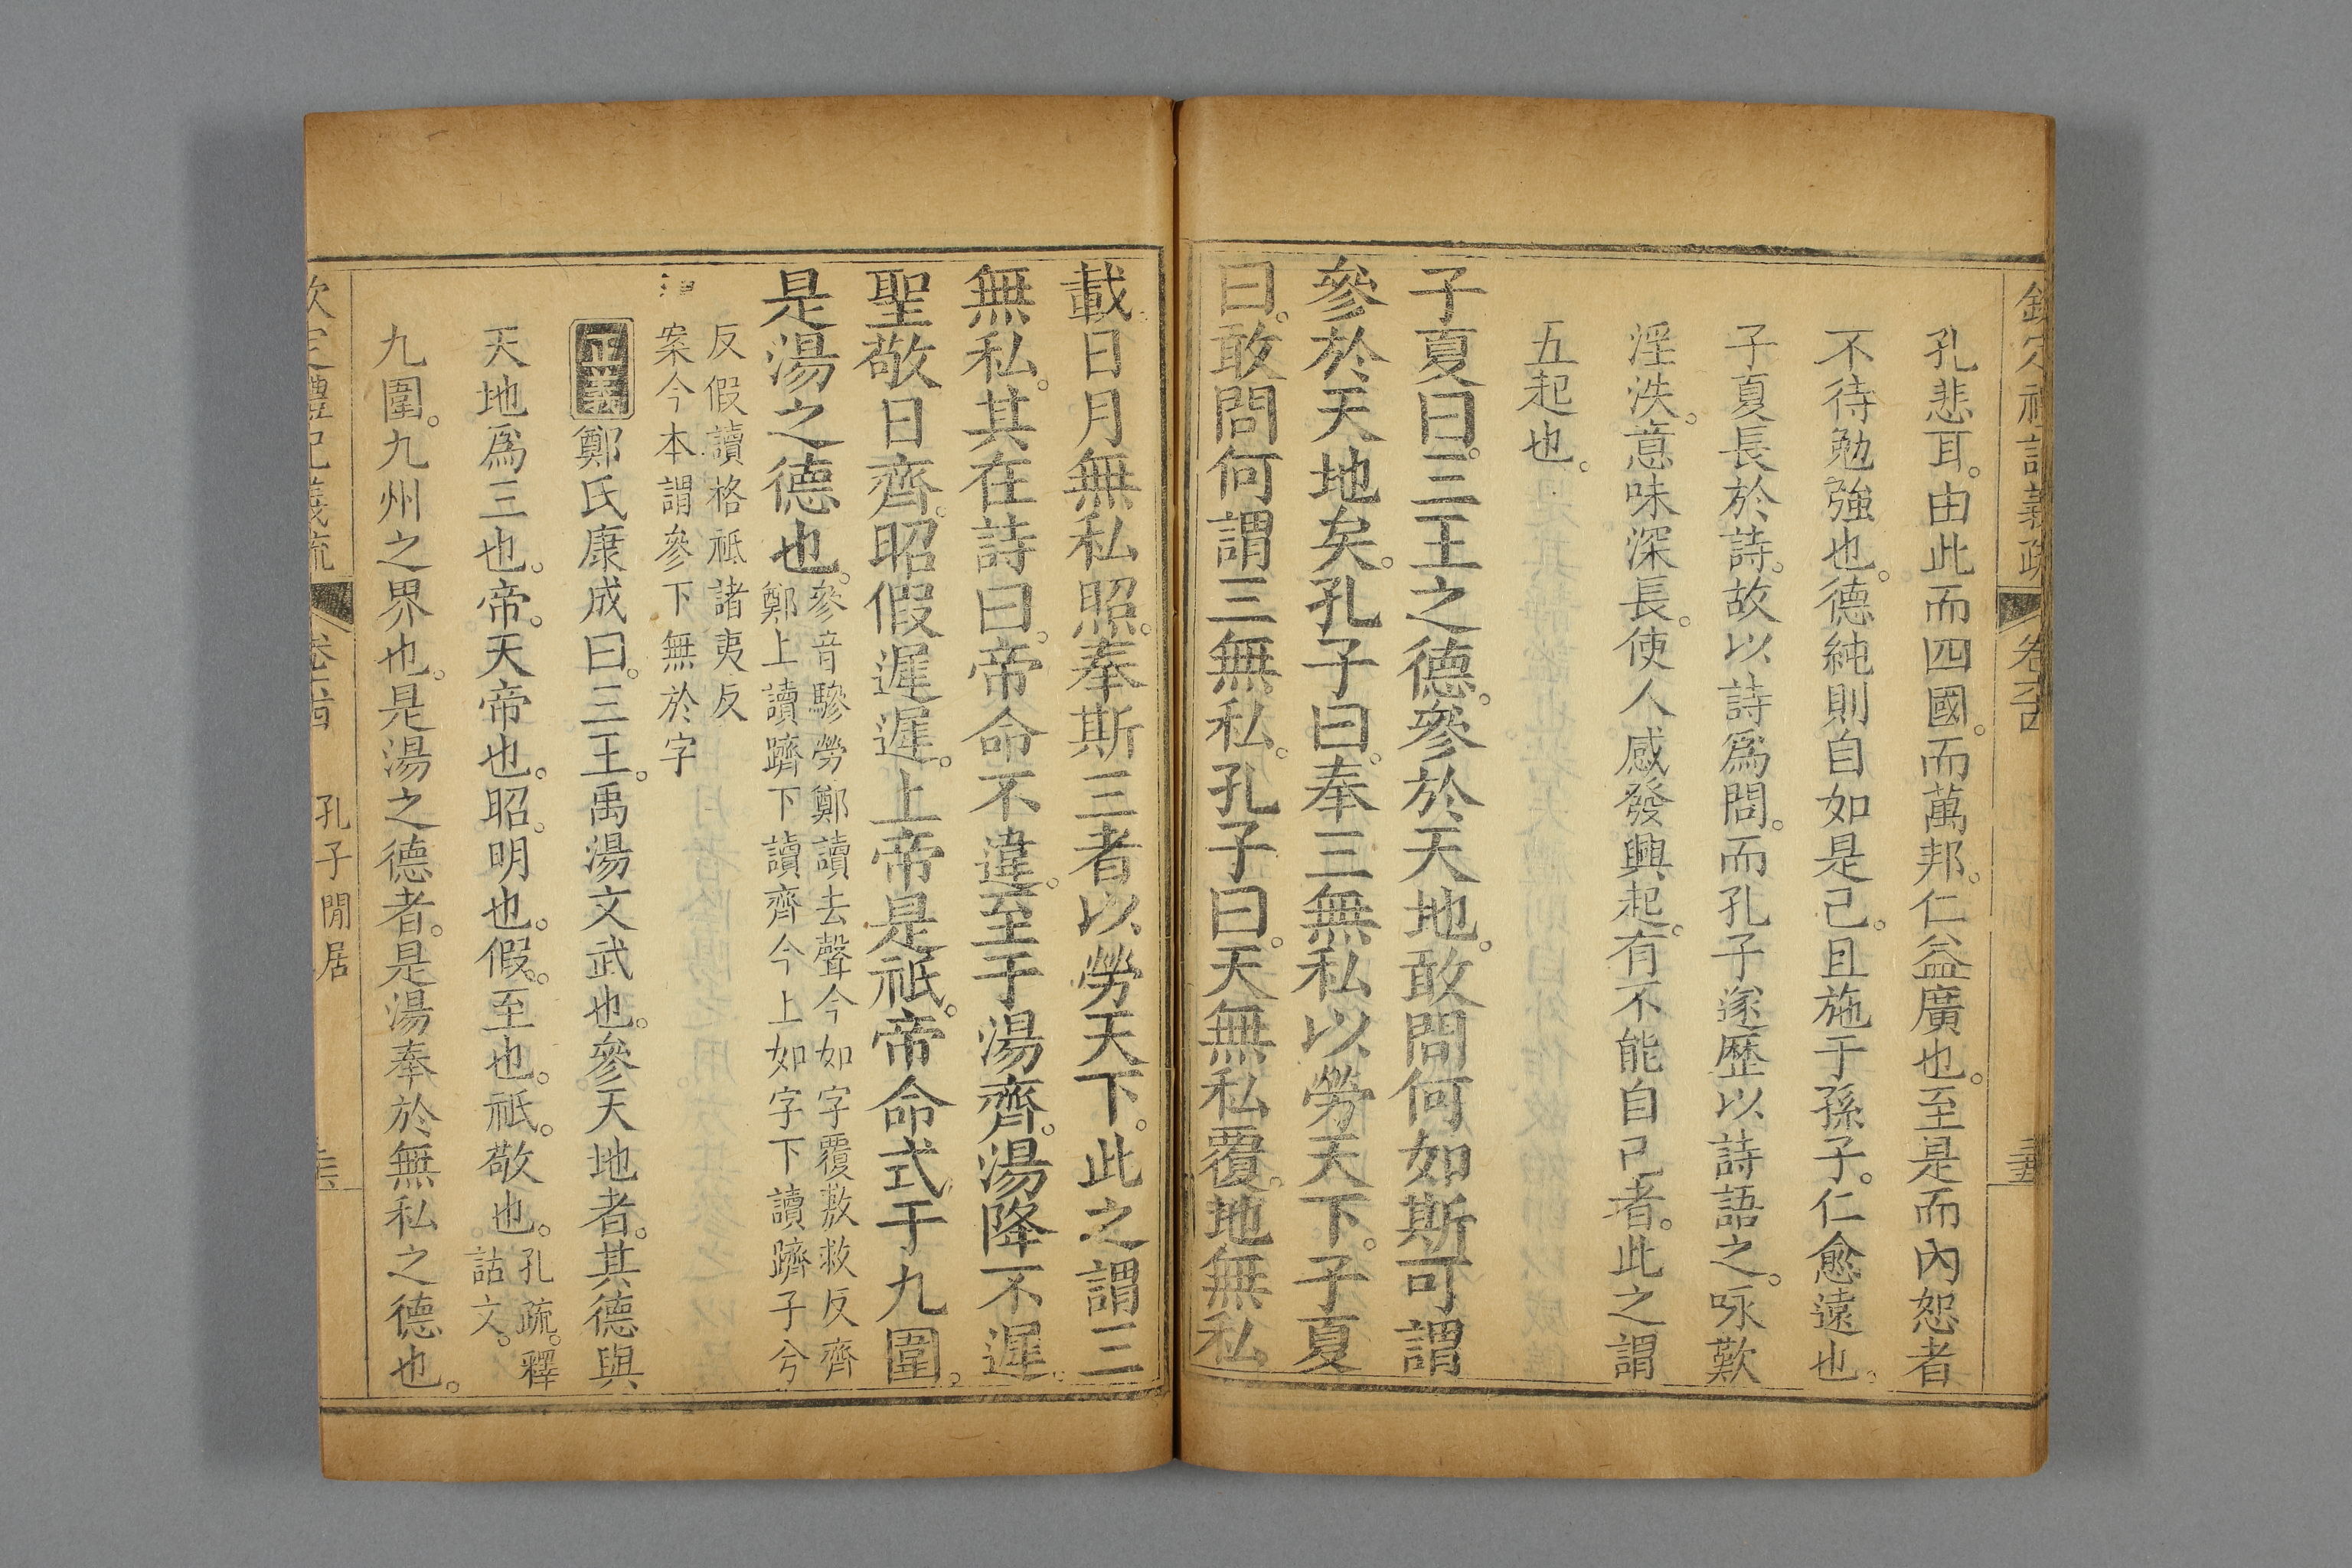 欽定禮記義疏
孔悲耳。由此而四國。而萬邦。仁益廣也。至是而內恕者
不待勉強也。德純則自如是已。且施于孫子。仁愈遠也。
子夏長於詩。故以詩為問。而孔子遂歷以詩語之。咏歎
淫泆。意味深長。使人感發興起。有不能自已者。此之謂
五起也。
子夏曰。三王之德。參於天地。敢問何如斯可謂
參於天地矣。孔子曰。奉三無私以勞天下。子夏
曰。敢問何謂三無私。孔子曰。天無私覆。地無私
載。日月無私照。奉斯三者以勞天下。此之謂三
無私。其在詩曰。帝命不違。至于湯齊。湯降不遲。
聖敬日齊。昭假遲遲。上帝是祇。帝命式于九圍。
是湯之德也。
參音驂勞鄭讀去聲今如字覆敷救反齊
鄭上讀躋下讀齊今上如字下讀躋子兮
反假讀格祗諸夷反
案今本謂參下無於字
正義鄭氏康成曰。三王。禹湯文武也。參天地者。其德與
天地爲三也。帝。天帝也。昭。明也。假。至也。祇。敬也。
孔疏。釋
詁文。
九圍。九州之界也。是湯之德者。是湯奉於無私之德也。
欽定禮記義疏
孔子閒居